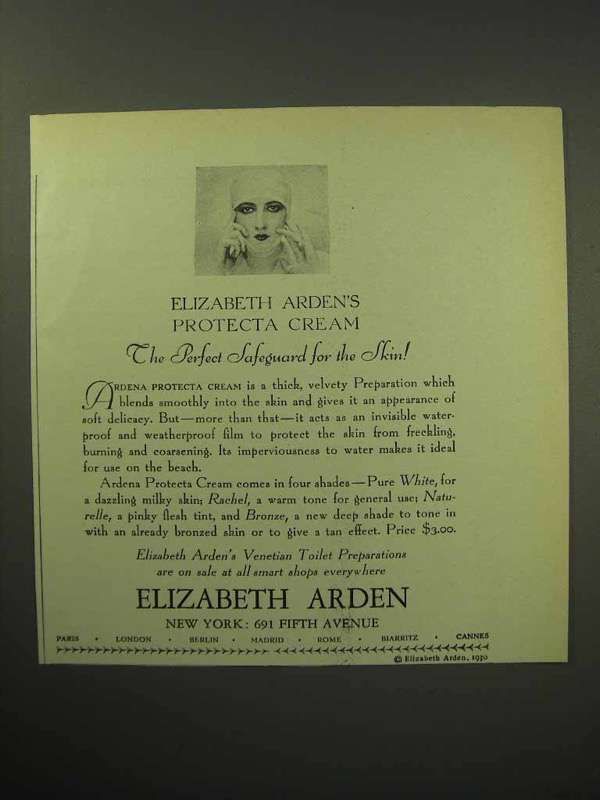 ELIZABETH ARDEN'S
PROTECTA CREAM
The Perfect Safeguard for the Skin!
ARDENA PROTECTA CREAM is a thick, velvety Preparation which
blends smoothly into the skin and gives it an appearance of
soft delicacy. But—more than that—it acts as an invisible water-
proof and weatherproof film to protect the skin from freckling,
burning and coarsening. Its imperviousness to water makes it ideal
for use on the beach.
Ardena Protecta Cream comes in four shades—Pure White, for
a dazzling milky skin; Rachel, a warm tone for general use; Natu-
relle, a pinky flesh tint, and Bronze, a new deep shade to tone in
with an already bronzed skin or to give a tan effect. Price $3.00.
Elizabeth Arden's Venetian Toilet Preparations
are on sale at all smart shops everywhere
ELIZABETH ARDEN
NEW YORK: 691 FIFTH AVENUE
PARIS • LONDON • BERLIN • MADRID • ROME • BIARRITZ • CANNES
© Elizabeth Arden, 1930